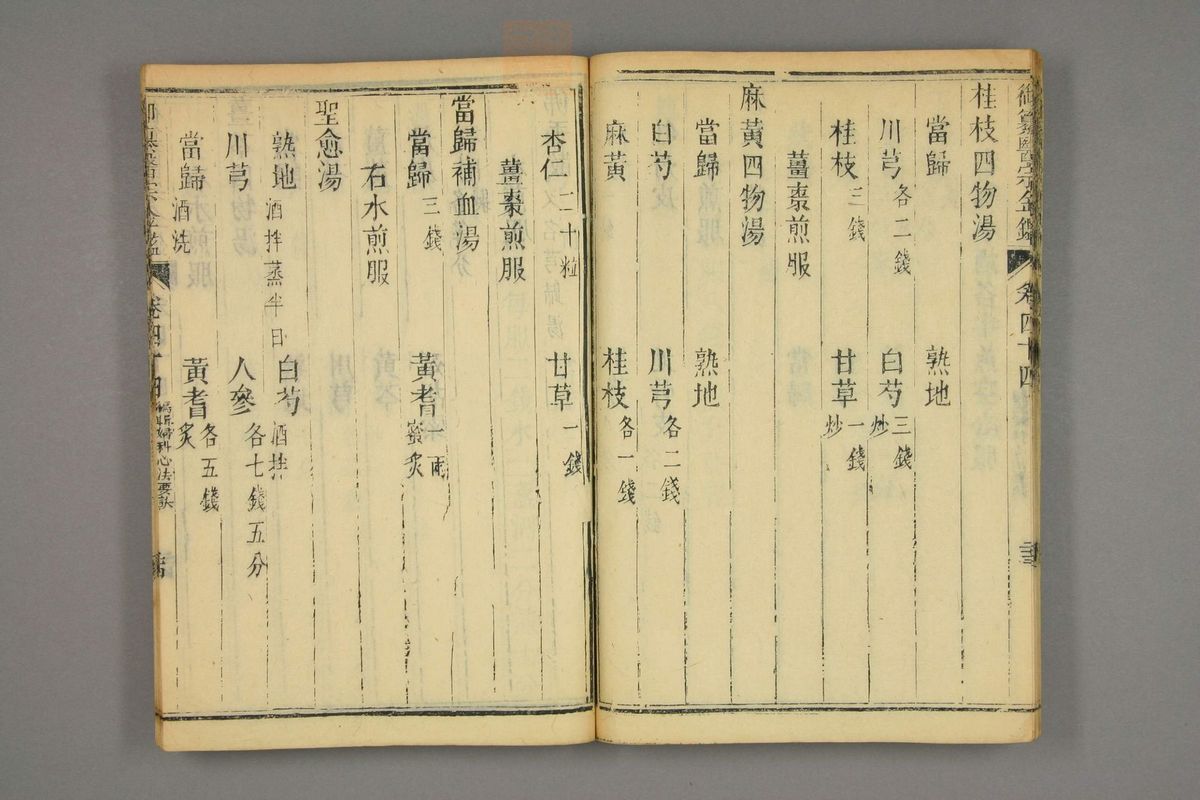 御纂醫宗金鑑 卷四十四
桂枝四物湯
當歸 熟地
川芎各二錢 白芍三錢炒
桂枝三錢 甘草一錢炒
薑棗煎服
麻黃四物湯
當歸 熟地
白芍 川芎各二錢
麻黃 桂枝各一錢
杏仁二十粒 甘草一錢
薑棗煎服
當歸補血湯
當歸三錢 黃耆一兩蜜炙
右水煎服
聖愈湯
熟地酒拌蒸半日 白芍酒拌
川芎 人參各七錢五分
當歸酒洗 黃耆各五錢炙
卷四十四 婦科心法要訣